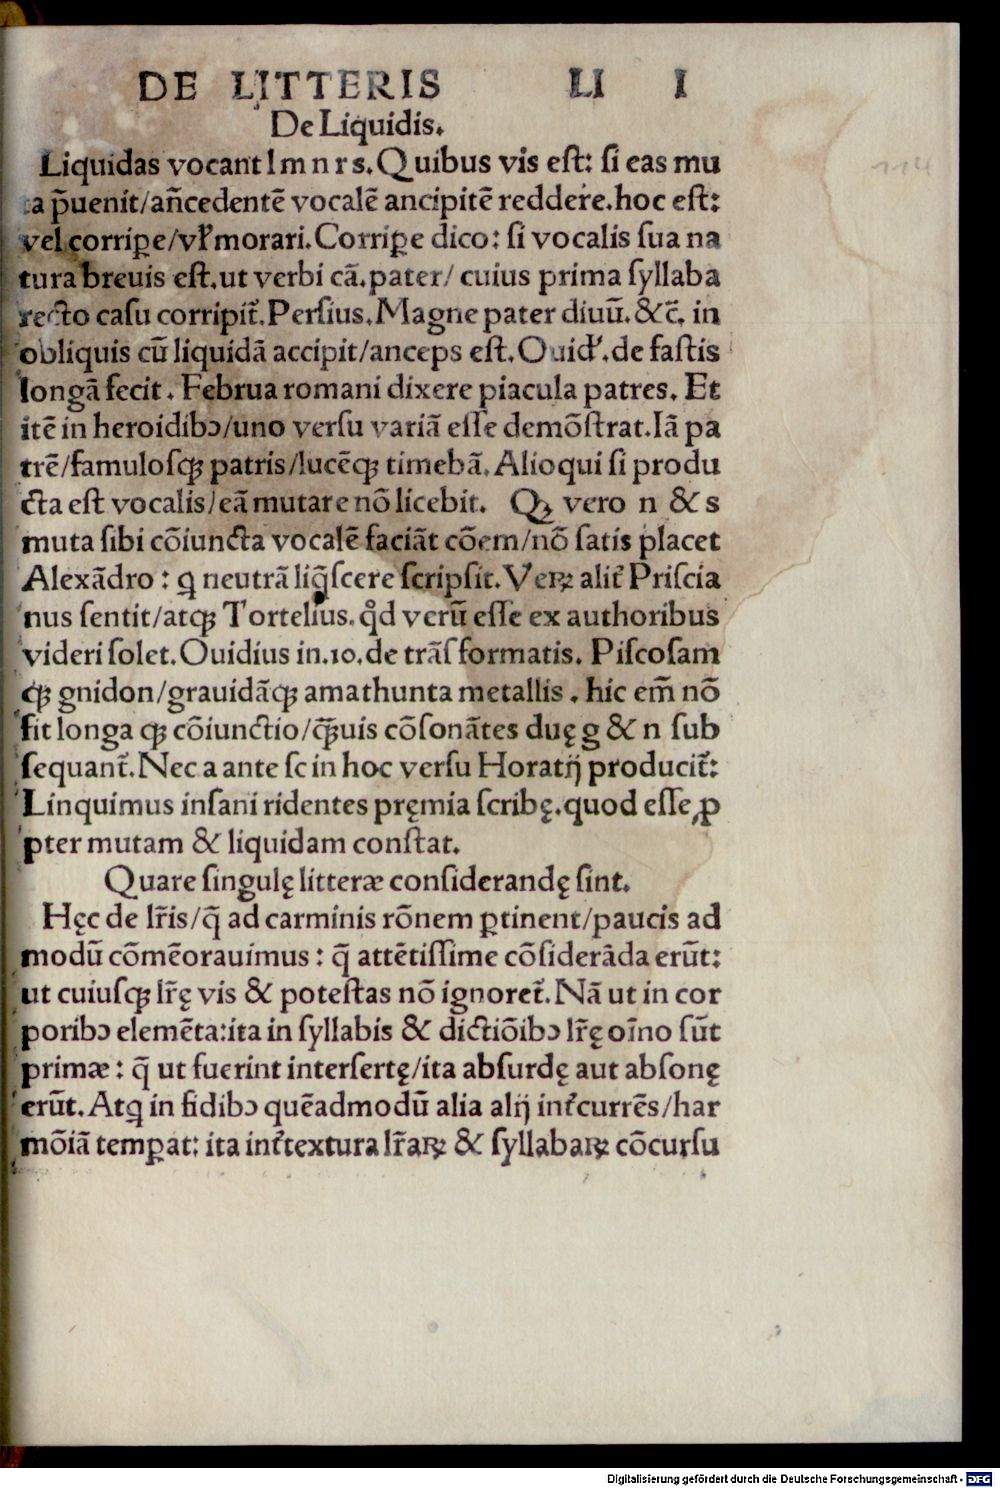 DE LITTERIS LI I
De Liquidis.
Liquidas vocant l m n r s. Quibus vis est: si eas mu
ta p̄uenit/an̄cedentē vocalē ancipitē reddere. hoc est:
vel corriꝑe/vꝉ morari. Corriꝑe dico: si vocalis sua na
tura breuis est. ut verbi cā. pater/ cuius prima syllaba
recto casu corripit᷑. Persius. Magne pater diuū. &c̄. in
obliquis cū liquidā accipit/anceps est. Ouid'. de fastis
longā fecit. Februa romani dixere piacula patres. Et
itē in heroidibꝰ/uno versu variā esse demōstrat. Iā pa
trē/famulosqꝫ patris/lucēqꝫ timebā. Alioqui si produ
cta est vocalis/eā mutare nō licebit. Qꝫ vero n & s
muta sibi cōiuncta vocalē faciāt cōem/nō satis placet
Alexādro: ꝗ neutrā liq̄scere scripsit. Veꝝ alit᷑ Priscia
nus sentit/atqꝫ Tortelius. qd̓ verū esse ex authoribus
videri solet. Ouidius in .10. de trāsformatis. Piscosam
qꝫ gnidon/grauidāqꝫ amathunta metallis. hic em̄ nō
fit longa qꝫ cōiunctio/q̄uis cōsonātes duę g & n sub
sequant᷑. Nec a ante sc in hoc versu Horatij producit᷑:
Linquimus insani ridentes pręmia scribę. quod esse ꝓ
pter mutam & liquidam constat.
Quare singulę litteræ considerandę sint.
Hęc de lr̄is/q̄ ad carminis rōnem ꝑtinent/paucis ad
modū cōmēorauimus: q̄ attētissime cōsiderāda erūt:
ut cuiusqꝫ lr̄ę vis & potestas nō ignoret᷑. Nā ut in cor
poribꝰ elemēta: ita in syllabis & dictiōibꝰ lr̄ę oīno sūt
primæ: q̄ ut fuerint intersertę/ita absurdę aut absonę
erūt. Atꝗ in fidibꝰ quēadmodū alia alij int᷑currēs/har
mōiā temꝑat: ita int᷑textura lr̄aꝝ & syllabaꝝ cōcursu
114
Digitalisierung gefördert durch die Deutsche Forschungsgemeinschaft - DFG